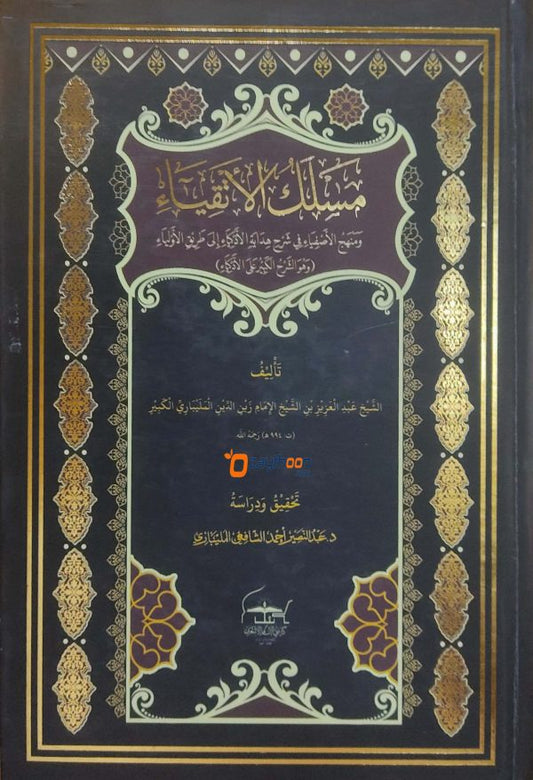 مَسْلَكُ الأَتْقِيَاءِ
وَمَنْهَجُ الأَصْفِيَاءِ فِي شَرْحِ هِدَايَةِ الأَذْكِيَاءِ إِلَى طَرِيقِ الأَوْلِيَاءِ
(وَهُوَ الشَّرْحُ الكَبِيرُ عَلَى الأَذْكِيَاءِ)
تَأْلِيفُ
الشَّيْخِ عَبْدِ الْعَزِيزِ بْنِ الشَّيْخِ الإِمَامِ زَيْنِ الدِّينِ الْمَلِيبَارِيِّ الْكَبِيرِ
(ت ٩٩٤ هـ) رَحِمَهُ اللَّه
تَحْقِيقُ وَدِرَاسَةُ
د. عَبْدُ النَّصِيرِ أَحْمَد الشَّافِعِيّ الْمَلِيبَارِيّ